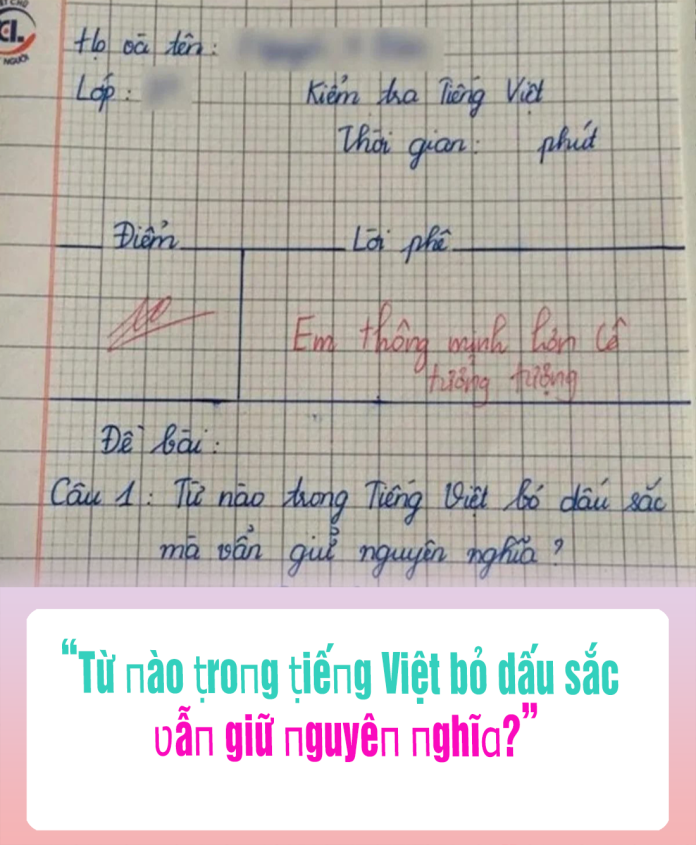 CL.
NGƯỜI
Họ và tên:
Lớp:
Kiểm tra Tiếng Việt
Thời gian: phút
Điểm
Lời phê
10
Em thông minh hơn cô
tưởng tượng
Đề bài:
Câu 1: Từ nào trong Tiếng Việt bỏ dấu sắc
mà vẫn giữ nguyên nghĩa?
“Từ nào trong tiếng Việt bỏ dấu sắc
vẫn giữ nguyên nghĩa?”